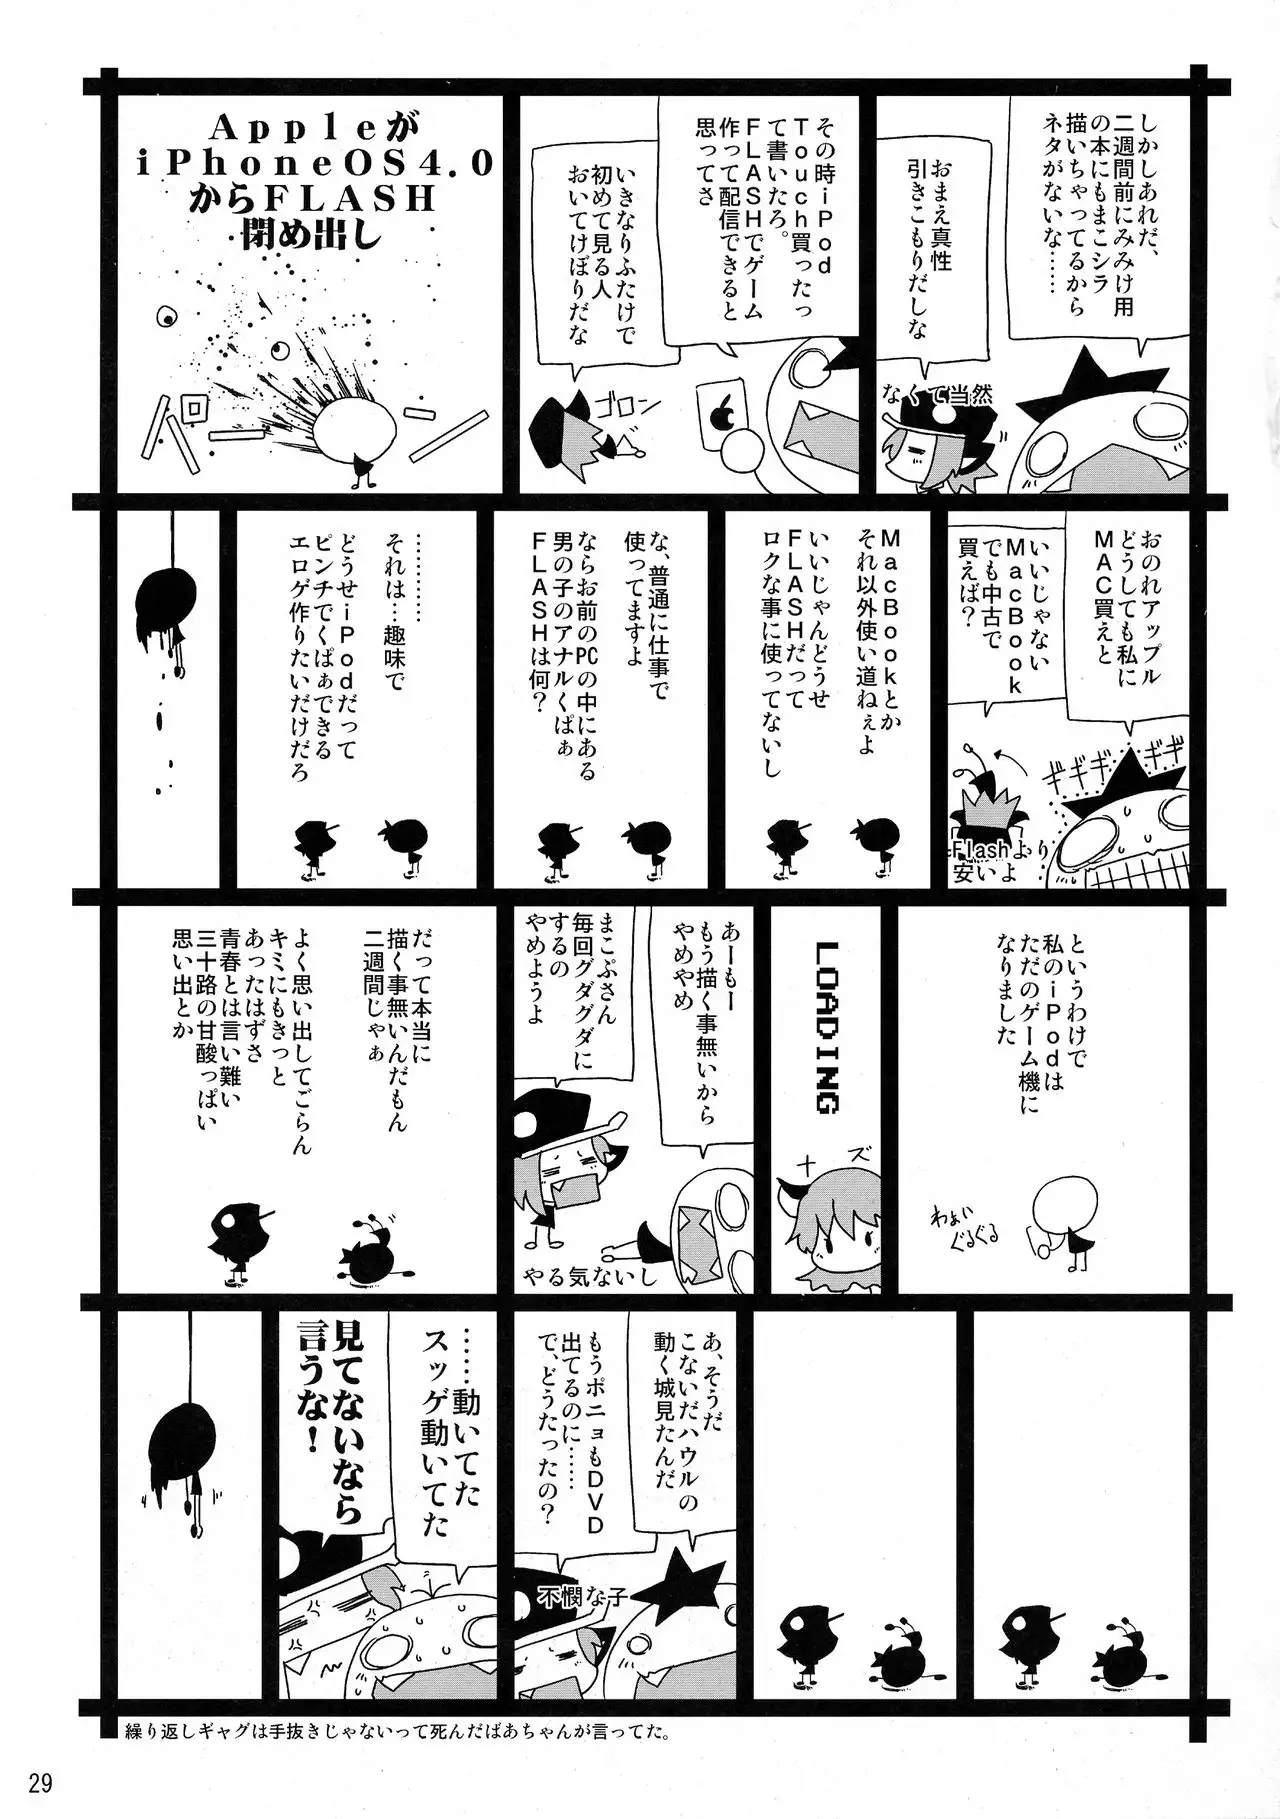 しかしあれだ、
二週間前にみみけ用
の本にもまこシラ
描いちゃってるから
ネタがないな……
おまえ真性
引きこもりだしな
なくて当然
その時iPod
Touch買ったっ
て書いたろ。
FLASHでゲーム
作って配信できると
思ってさ
いきなりふたけで
初めて見る人
おいてけぼりだな
ゴロン
Appleが
iPhoneOS4.0
からFLASH
閉め出し
おのれアップル
どうしても私に
MAC買えと
いいじゃない
MacBook
でも中古で
買えば?
ギギギ ギギ
Flashより
安いよ
MacBookとか
それ以外使い道ねぇよ
いいじゃんどうせ
FLASHだって
ロクな事に使ってないし
な、普通に仕事で
使ってますよ
ならお前のPCの中にある
男の子のアナルくぱぁ
FLASHは何?
…………
それは…趣味で
どうせiPodだって
ピンチでくぱぁできる
エロゲ作りたいだけだろ
というわけで
私のiPodは
ただのゲーム機に
なりました
わぁい
ぐるぐる
LOADING
ナズ
あーもー
もう描く事無いから
やめやめ
まこぷさん
毎回グダグダに
するの
やめようよ
やる気ないし
だって本当に
描く事無いんだもん
二週間じゃぁ
よく思い出してごらん
キミにもきっと
あったはずさ
青春とは言い難い
三十路の甘酸っぱい
思い出とか
あ、そうだ
こないだハウルの
動く城見たんだ
もうポニョもDVD
出てるのに……
で、どうたったの?
不憫な子
……動いてた
スッゲ動いてた
見てないなら
言うな!
繰り返しギャグは手抜きじゃないって死んだばあちゃんが言ってた。
29